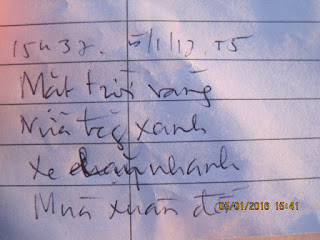 15h37. 5/1/17. T5
Mặt trời vàng
Nửa tég xanh
Xe chạy nhanh
Mùa xuân đến
05/01/2016 15:41